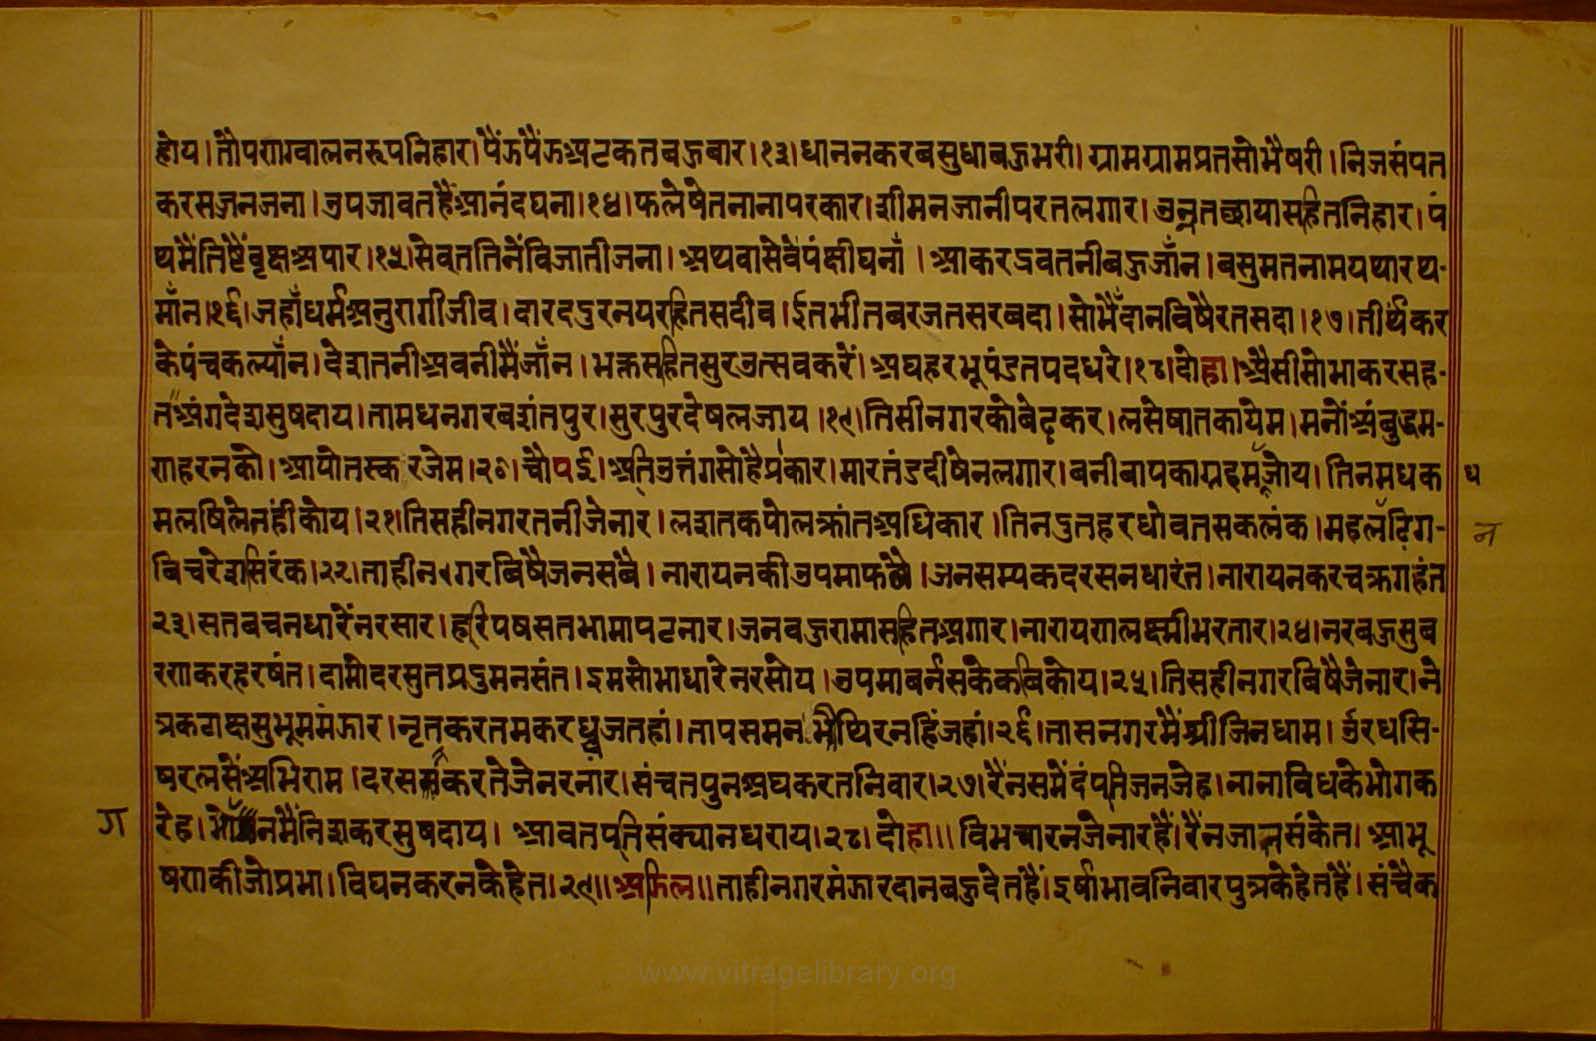 होय।तौपरागवालनरूपनिहार।पैंऊपैंऊअटकतबऊबार।१३।धाननकरबसुधाबऊभरी।ग्रामग्रामप्रतसोभैषरी।निजसंपत
करसजनजना।उपजावतहैंआनंदघना।१४।फलेषेतनानापरकार।शीमनजानीपरतलगार।उन्नतछायासहितनिहार।पं
थमैंतिष्टैंवृक्षअपार।१५।सेवततिनेंविजातीजना।अथवासेवेंपंक्षीघनाँ।आकरद्रवतनीबऊजाँन।बसुमतनामयथारथ-
माँन।१६।जहाँधर्मअनुरागीजीव।दारददुरनयरहितसदीव।ईतभीतबरजतसरबदा।सोभैंदानविषैरतसदा।१७।तीर्थंकर
केपंचकल्याँन।देशतनीअवनीमैंजाँन।भक्तसहितसुरउत्सवकरें।अघहरभूपंडतपदधरे।१८।दोहा।अैसीसोभाकरसह-
तअंगदेशसुषदाय।तामधनगरबशंतपुर।सुरपुरदेषलजाय।१९।तिसीनगरकोबेढ़कर।लसेषातकायेम।मनोंअंबुद्धम-
णहरनको।आयोतस्करजेम।२०।चौपई।अतिउत्तंगसोहैप्राकार।मारतंडदीषेनलगार।बनीबापकाग्रहमजोय।तिनमधक
ध
मलषिलेनहींकोय।२१।तिसहीनगरतनीजेनार।लशतकपोलक्रांतअधिकार।तिनदुतहरधोवतसकलंक।महलढिग-
न
विचरेशसिरंक।२२।ताहीनगरबिषैजनसबै।नारायनकीउपमाफबै।जनसम्यकदरसनधारंत।नारायनकरचक्रगहंत
२३।सतबचनधारेंनरसार।हरिपषसतभामापटनार।जनबऊरामासहितअगार।नारायणलक्ष्मीभरतार।२४।नरबऊसुब
रणकरहरषंत।दामोदरसुतप्रदुमनसंत।इमसोभाधारेनरसोय।उपमाबर्नसकेकविकोय।२५।तिसहीनगरविषैजेनार।ने
त्रकटाक्षसुभूममंझार।नृतकरतमकरध्वजतहां।तापसमनभैथिरनहिंजहां।२६।तासनगरमैंश्रीजिनधाम।उरधसि-
षरलसेंअभिराम।दरसकरतेजेनरनार।संचतपुनअघकरतनिवार।२७।रैंनसमेंदंपतिजनजेह।नानाविधकेभोगक
ग
रेह।भोगनमैंनिशकरसुषदाय।आवतपतिसंक्यानधराय।२८।दोहा॥विभचारनजेनारहैं।रैंनजातसंकेत।आभू
षणकीजोप्रभा।विघनकरनकेहेत।२९॥अडिल॥ताहीनगरमंझारदानबऊदेतहैं।इर्षाभावनिवारपुन्नकेहेतहैं।संचैक
www.vitragelibrary.org